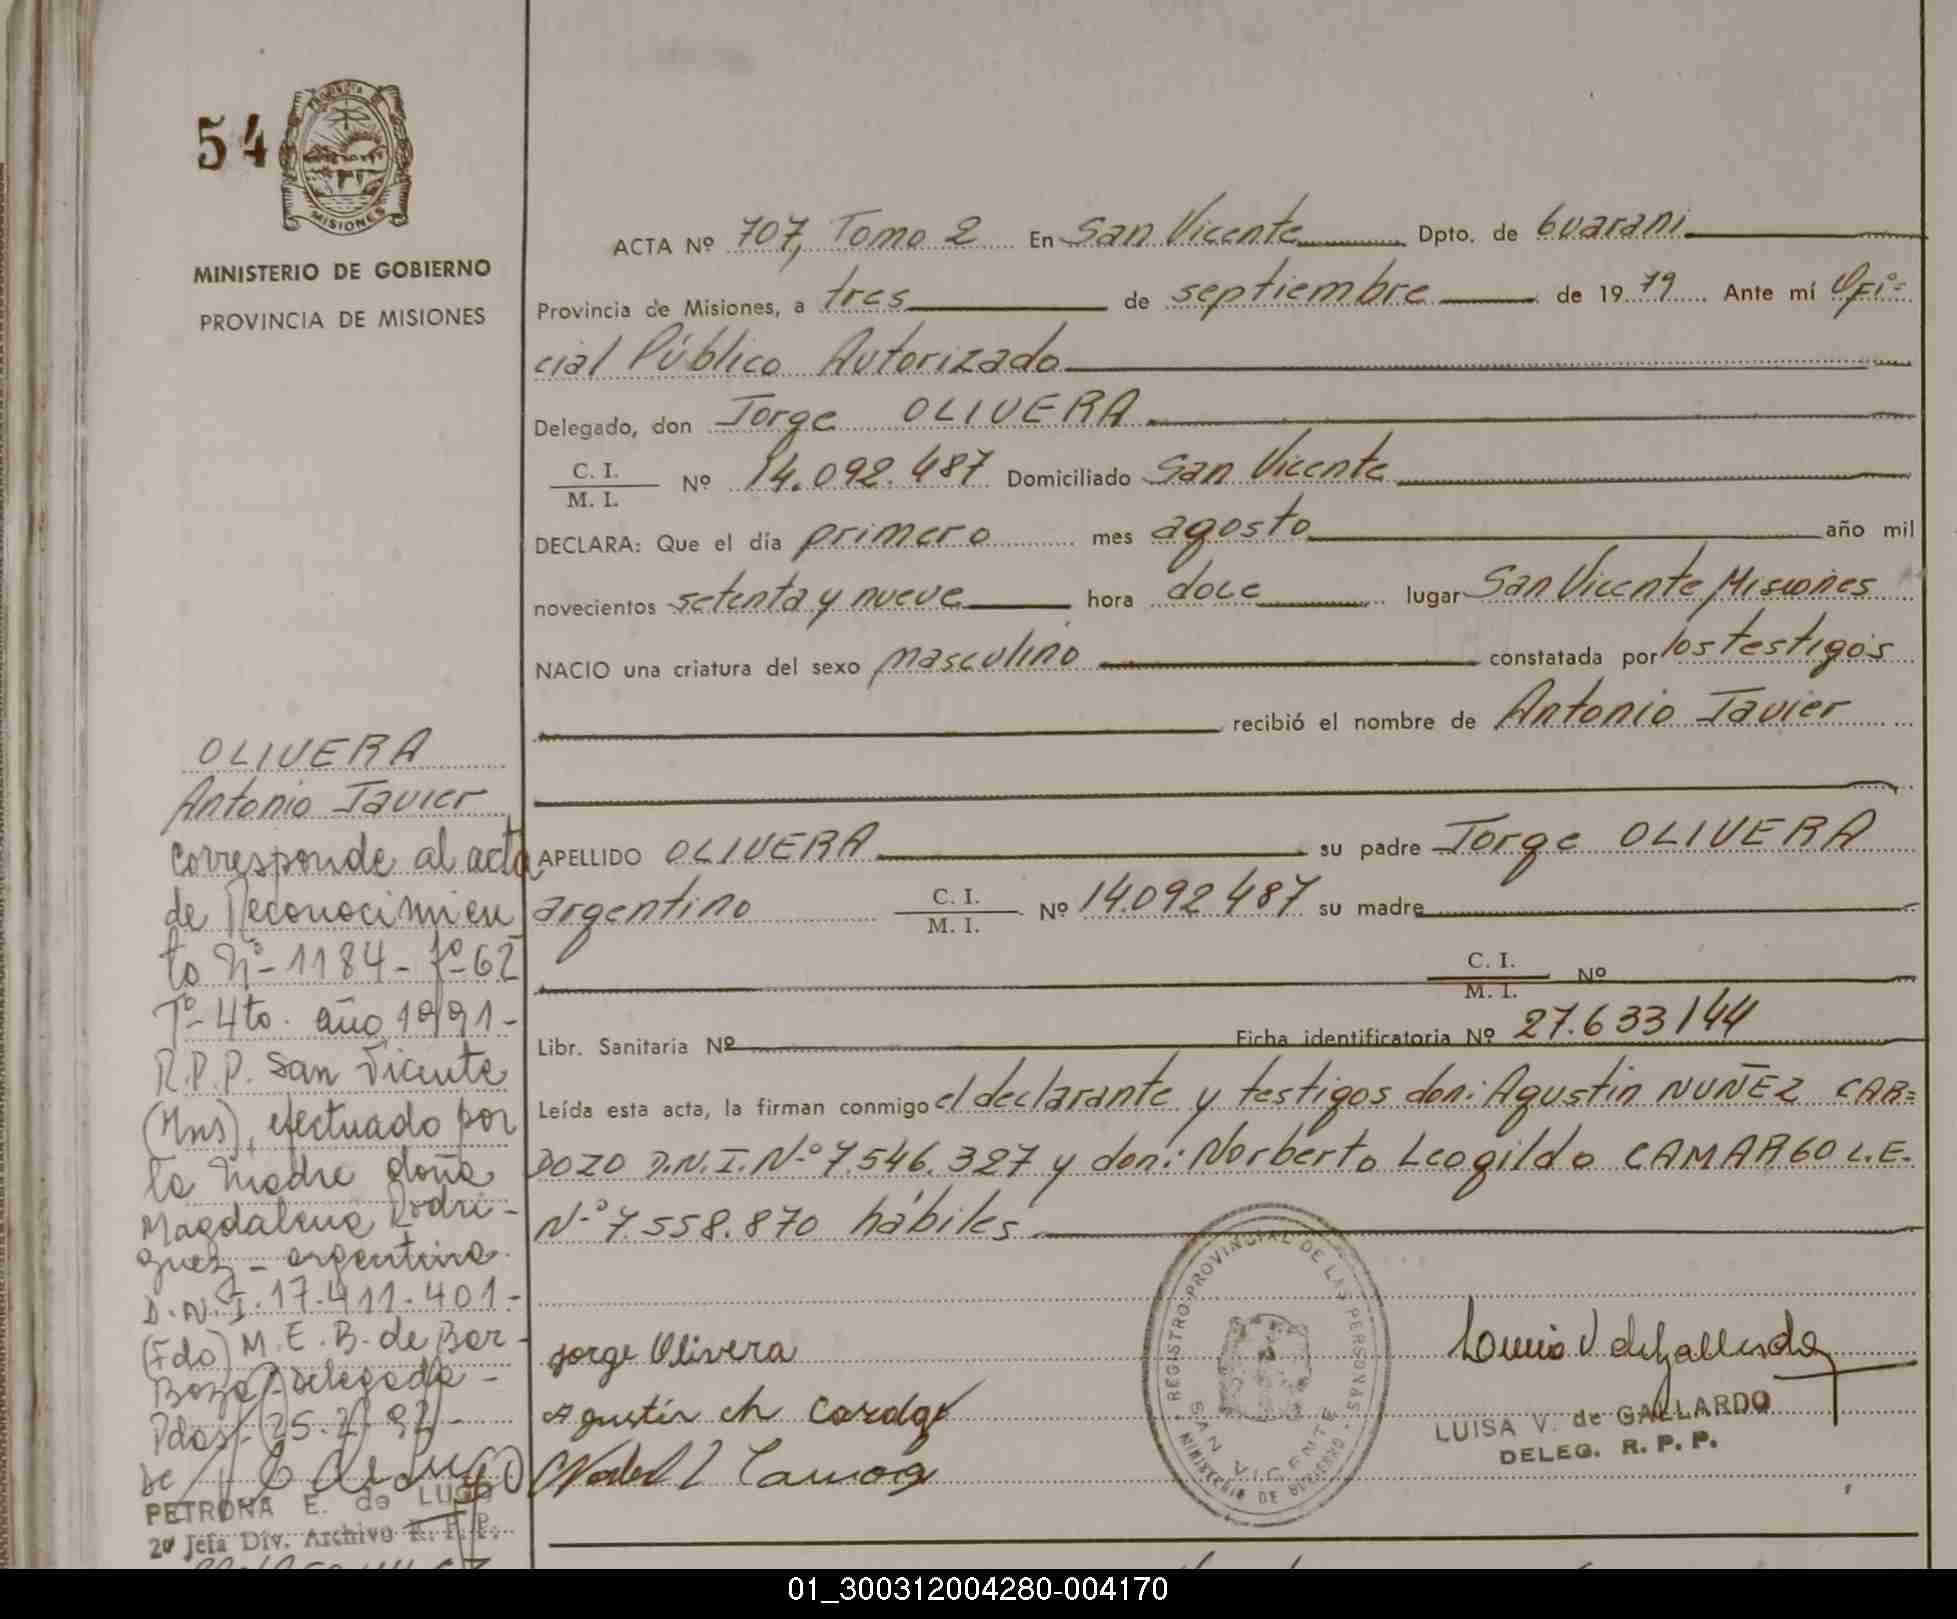 54
PROVINCIA DE
MISIONES
MINISTERIO DE GOBIERNO
PROVINCIA DE MISIONES
OLIVERA
Antonio Javier
corresponde al acta
de Reconocimien
to Nº-1184-fº-62
Tº-4to. año 1991-
R.P.P. San Vicente
(Mns), efectuado por
la madre doña
Magdalena Rodri-
guez - argentina.
D.N.I. 17.411.401.-
(Fdo) M.E.B. de Bar-
Boza Delegada -
Pdas, 25.2.92-
PETRONA E. de LUGO
2º Jefa Div. Archivo R.P.P.
ACTA Nº 707, Tomo 2 En San Vicente Dpto. de Guarani
Provincia de Misiones, a tres de septiembre de 1979 Ante mí Ofi=
cial Público Autorizado
Delegado, don Jorge OLIVERA
C. I.
M. I. Nº 14.092.487 Domiciliado San Vicente
DECLARA: Que el día primero mes agosto año mil
novecientos setenta y nueve hora doce lugar San Vicente Misiones
NACIO una criatura del sexo masculino constatada por los testigos
recibió el nombre de Antonio Javier
APELLIDO OLIVERA su padre Jorge OLIVERA
argentino C. I.
M. I. Nº 14.092487 su madre
C. I.
M. I. Nº
Libr. Sanitaria Nº Ficha identificatoria Nº 27.633144
Leída esta acta, la firman conmigo el declarante y testigos don: Agustin NUÑEZ CAR=
DOZO D.N.I. Nº 7.546.327 y don: Norberto Leogildo CAMARGO L.E.
Nº 7.558.870 hábiles
Jorge Olivera
Agustín
REGISTRO PROVINCIAL DE LAS PERSONAS
SAN VICENTE
MINISTERIO DE GOBIERNO
LUISA V. de GALLARDO
DELEG. R. P. P.
01_300312004280-004170